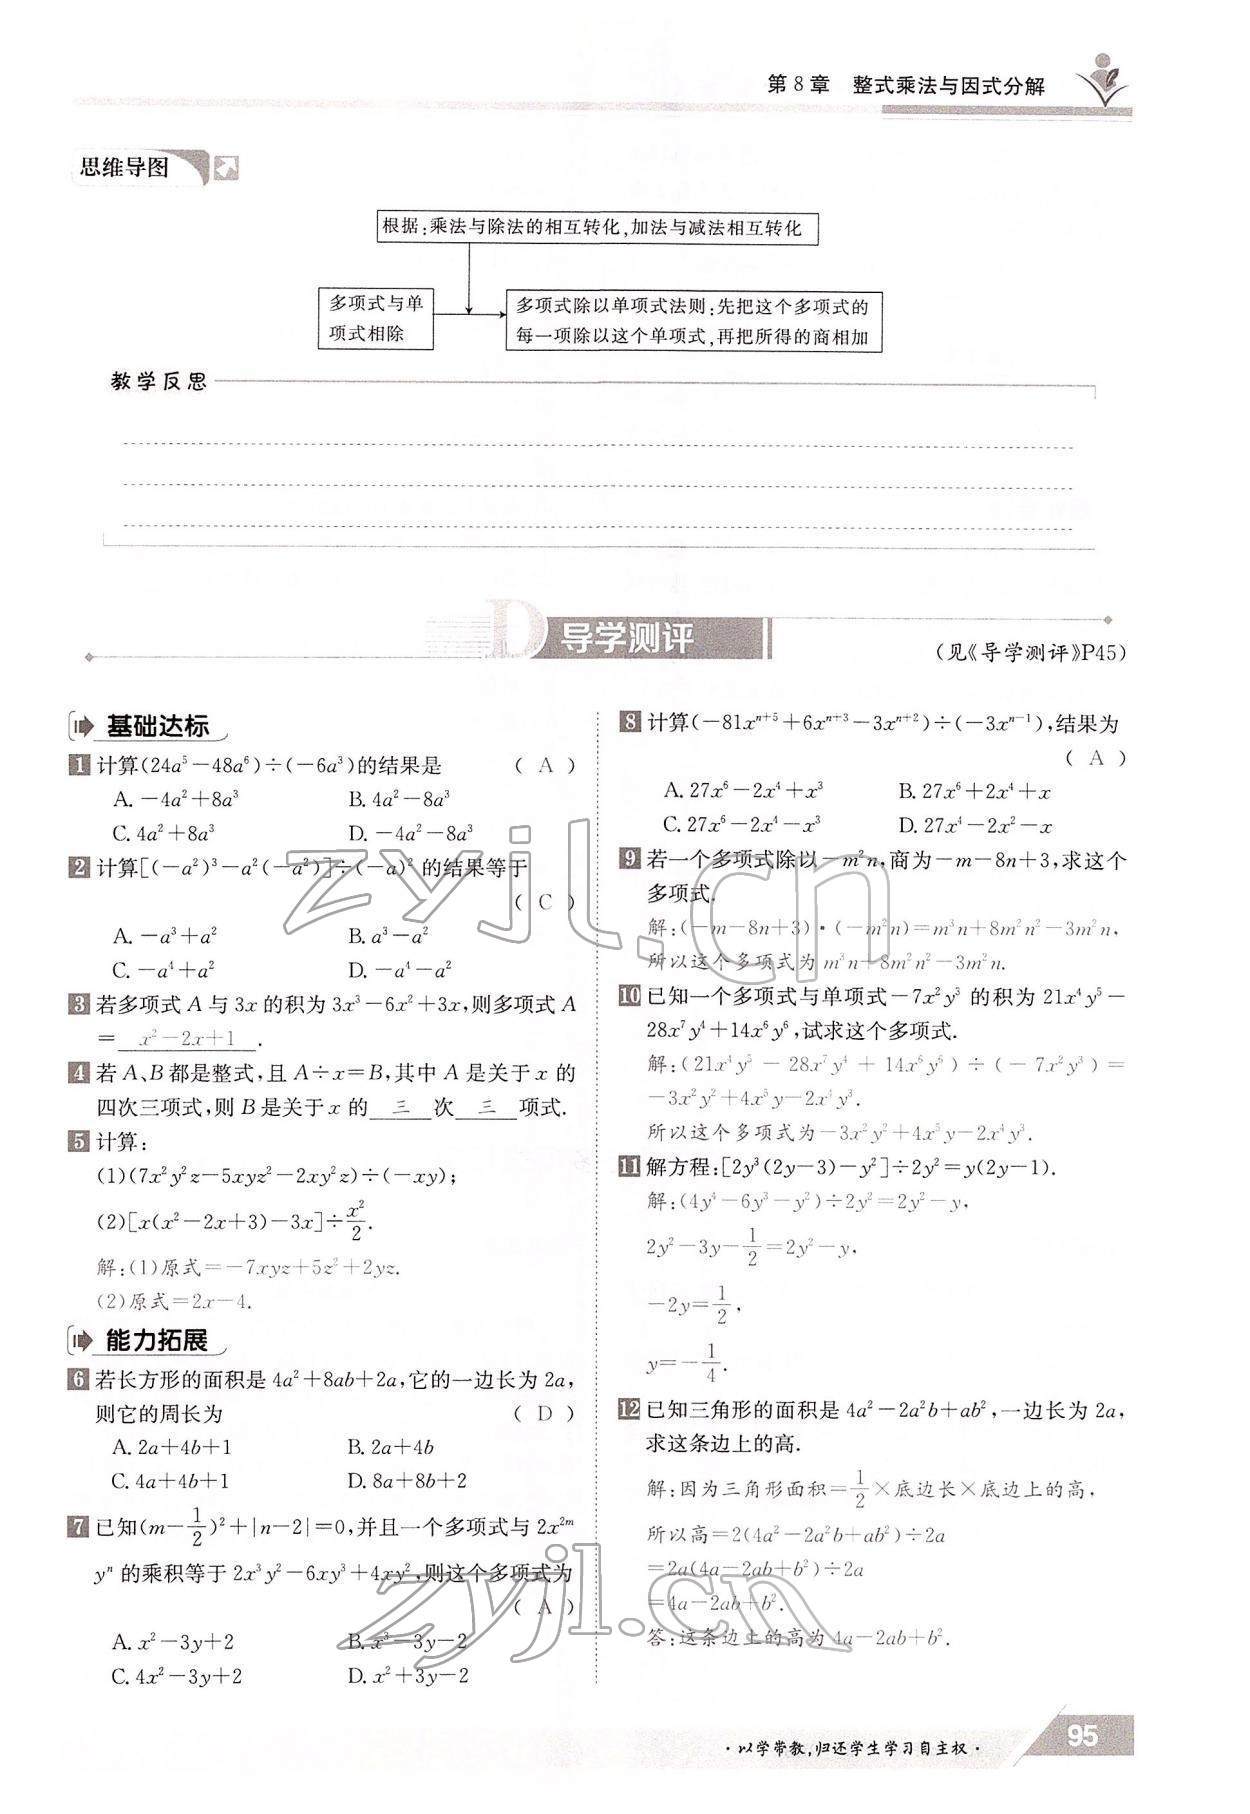 第8章 整式乘法与因式分解
思维导图
根据:乘法与除法的相互转化,加法与减法相互转化
多项式与单
项式相除
多项式除以单项式法则:先把这个多项式的
每一项除以这个单项式,再把所得的商相加
教学反思
D 导学测评
(见《导学测评》P45)
基础达标
1 计算(24a⁵-48a⁶)÷(-6a³)的结果是 ( A )
A. -4a²+8a³ B. 4a²-8a³
C. 4a²+8a³ D. -4a²-8a³
2 计算[(-a²)³-a²(-a²)]÷(-a)²的结果等于
( C )
A. -a³+a² B. a³-a²
C. -a⁴+a² D. -a⁴-a²
3 若多项式A与3x的积为3x³-6x²+3x,则多项式A
= x²-2x+1 .
4 若A、B都是整式,且A÷x=B,其中A是关于x的
四次三项式,则B是关于x的 三 次 三 项式.
5 计算:
(1)(7x²y²z-5xyz²-2xy²z)÷(-xy);
(2)[x(x²-2x+3)-3x]÷x²/2.
解:(1)原式=-7xyz+5z²+2yz.
(2)原式=2x-4.
能力拓展
6 若长方形的面积是4a²+8ab+2a,它的一边长为2a,
则它的周长为 ( D )
A. 2a+4b+1 B. 2a+4b
C. 4a+4b+1 D. 8a+8b+2
7 已知(m-1/2)²+|n-2|=0,并且一个多项式与2x²ᵐ
yⁿ的乘积等于2x³y²-6xy³+4xy²,则这个多项式为
( A )
A. x²-3y+2 B. x³-3y-2
C. 4x²-3y+2 D. x²+3y-2
8 计算(-81xⁿ⁺⁵+6xⁿ⁺³-3xⁿ⁺²)÷(-3xⁿ⁻¹),结果为
( A )
A. 27x⁶-2x⁴+x³ B. 27x⁶+2x⁴+x
C. 27x⁶-2x⁴-x³ D. 27x⁴-2x²-x
9 若一个多项式除以-m²n,商为-m-8n+3,求这个
多项式.
解:(-m-8n+3)·(-m²n)=m³n+8m²n²-3m²n,
所以这个多项式为m³n+8m²n²-3m²n.
10 已知一个多项式与单项式-7x²y³的积为21x⁴y⁵-
28x⁷y⁴+14x⁶y⁶,试求这个多项式.
解:(21x⁴y⁵-28x⁷y⁴+14x⁶y⁶)÷(-7x²y³)=
-3x²y²+4x⁵y-2x⁴y³.
所以这个多项式为-3x²y²+4x⁵y-2x⁴y³.
11 解方程:[2y³(2y-3)-y²]÷2y²=y(2y-1).
解:(4y⁴-6y³-y²)÷2y²=2y²-y,
2y²-3y-1/2=2y²-y,
-2y=1/2,
y=-1/4.
12 已知三角形的面积是4a²-2a²b+ab²,一边长为2a,
求这条边上的高.
解:因为三角形面积=1/2×底边长×底边上的高,
所以高=2(4a²-2a²b+ab²)÷2a
=2a(4a-2ab+b²)÷2a
=4a-2ab+b².
答:这条边上的高为4a-2ab+b².
·以学带教,归还学生学习自主权·
95
zyjl.cn
zyjl.cn